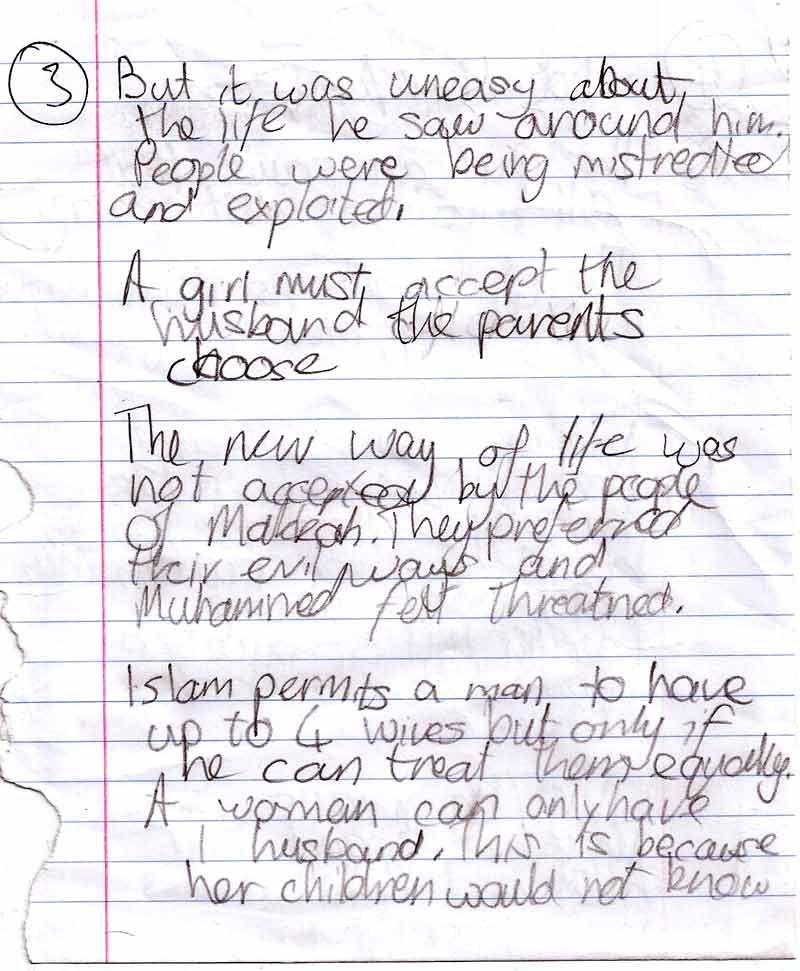 3
But it was uneasy about
the life he saw around him.
People were being mistreated
and exploited.
A girl must accept the
husband the parents
choose
The new way of life was
not accepted by the people
of Makkah. They preferred
their evil ways and
Muhammed felt threatned.
Islam permits a man to have
up to 4 wives but only if
he can treat them equally.
A woman can only have
1 husband. This is because
her children would not know